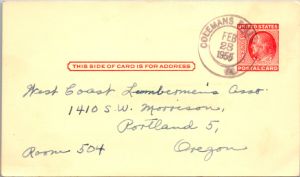 COLEMANS
FEB
28
UNITED STATES
POSTAL CARD
THIS SIDE OF CARD IS FOR ADDRESS
West Coast Lumbermen's Asso.
1410 S.W. Morrison,
Portland 5,
Room 504 Oregon